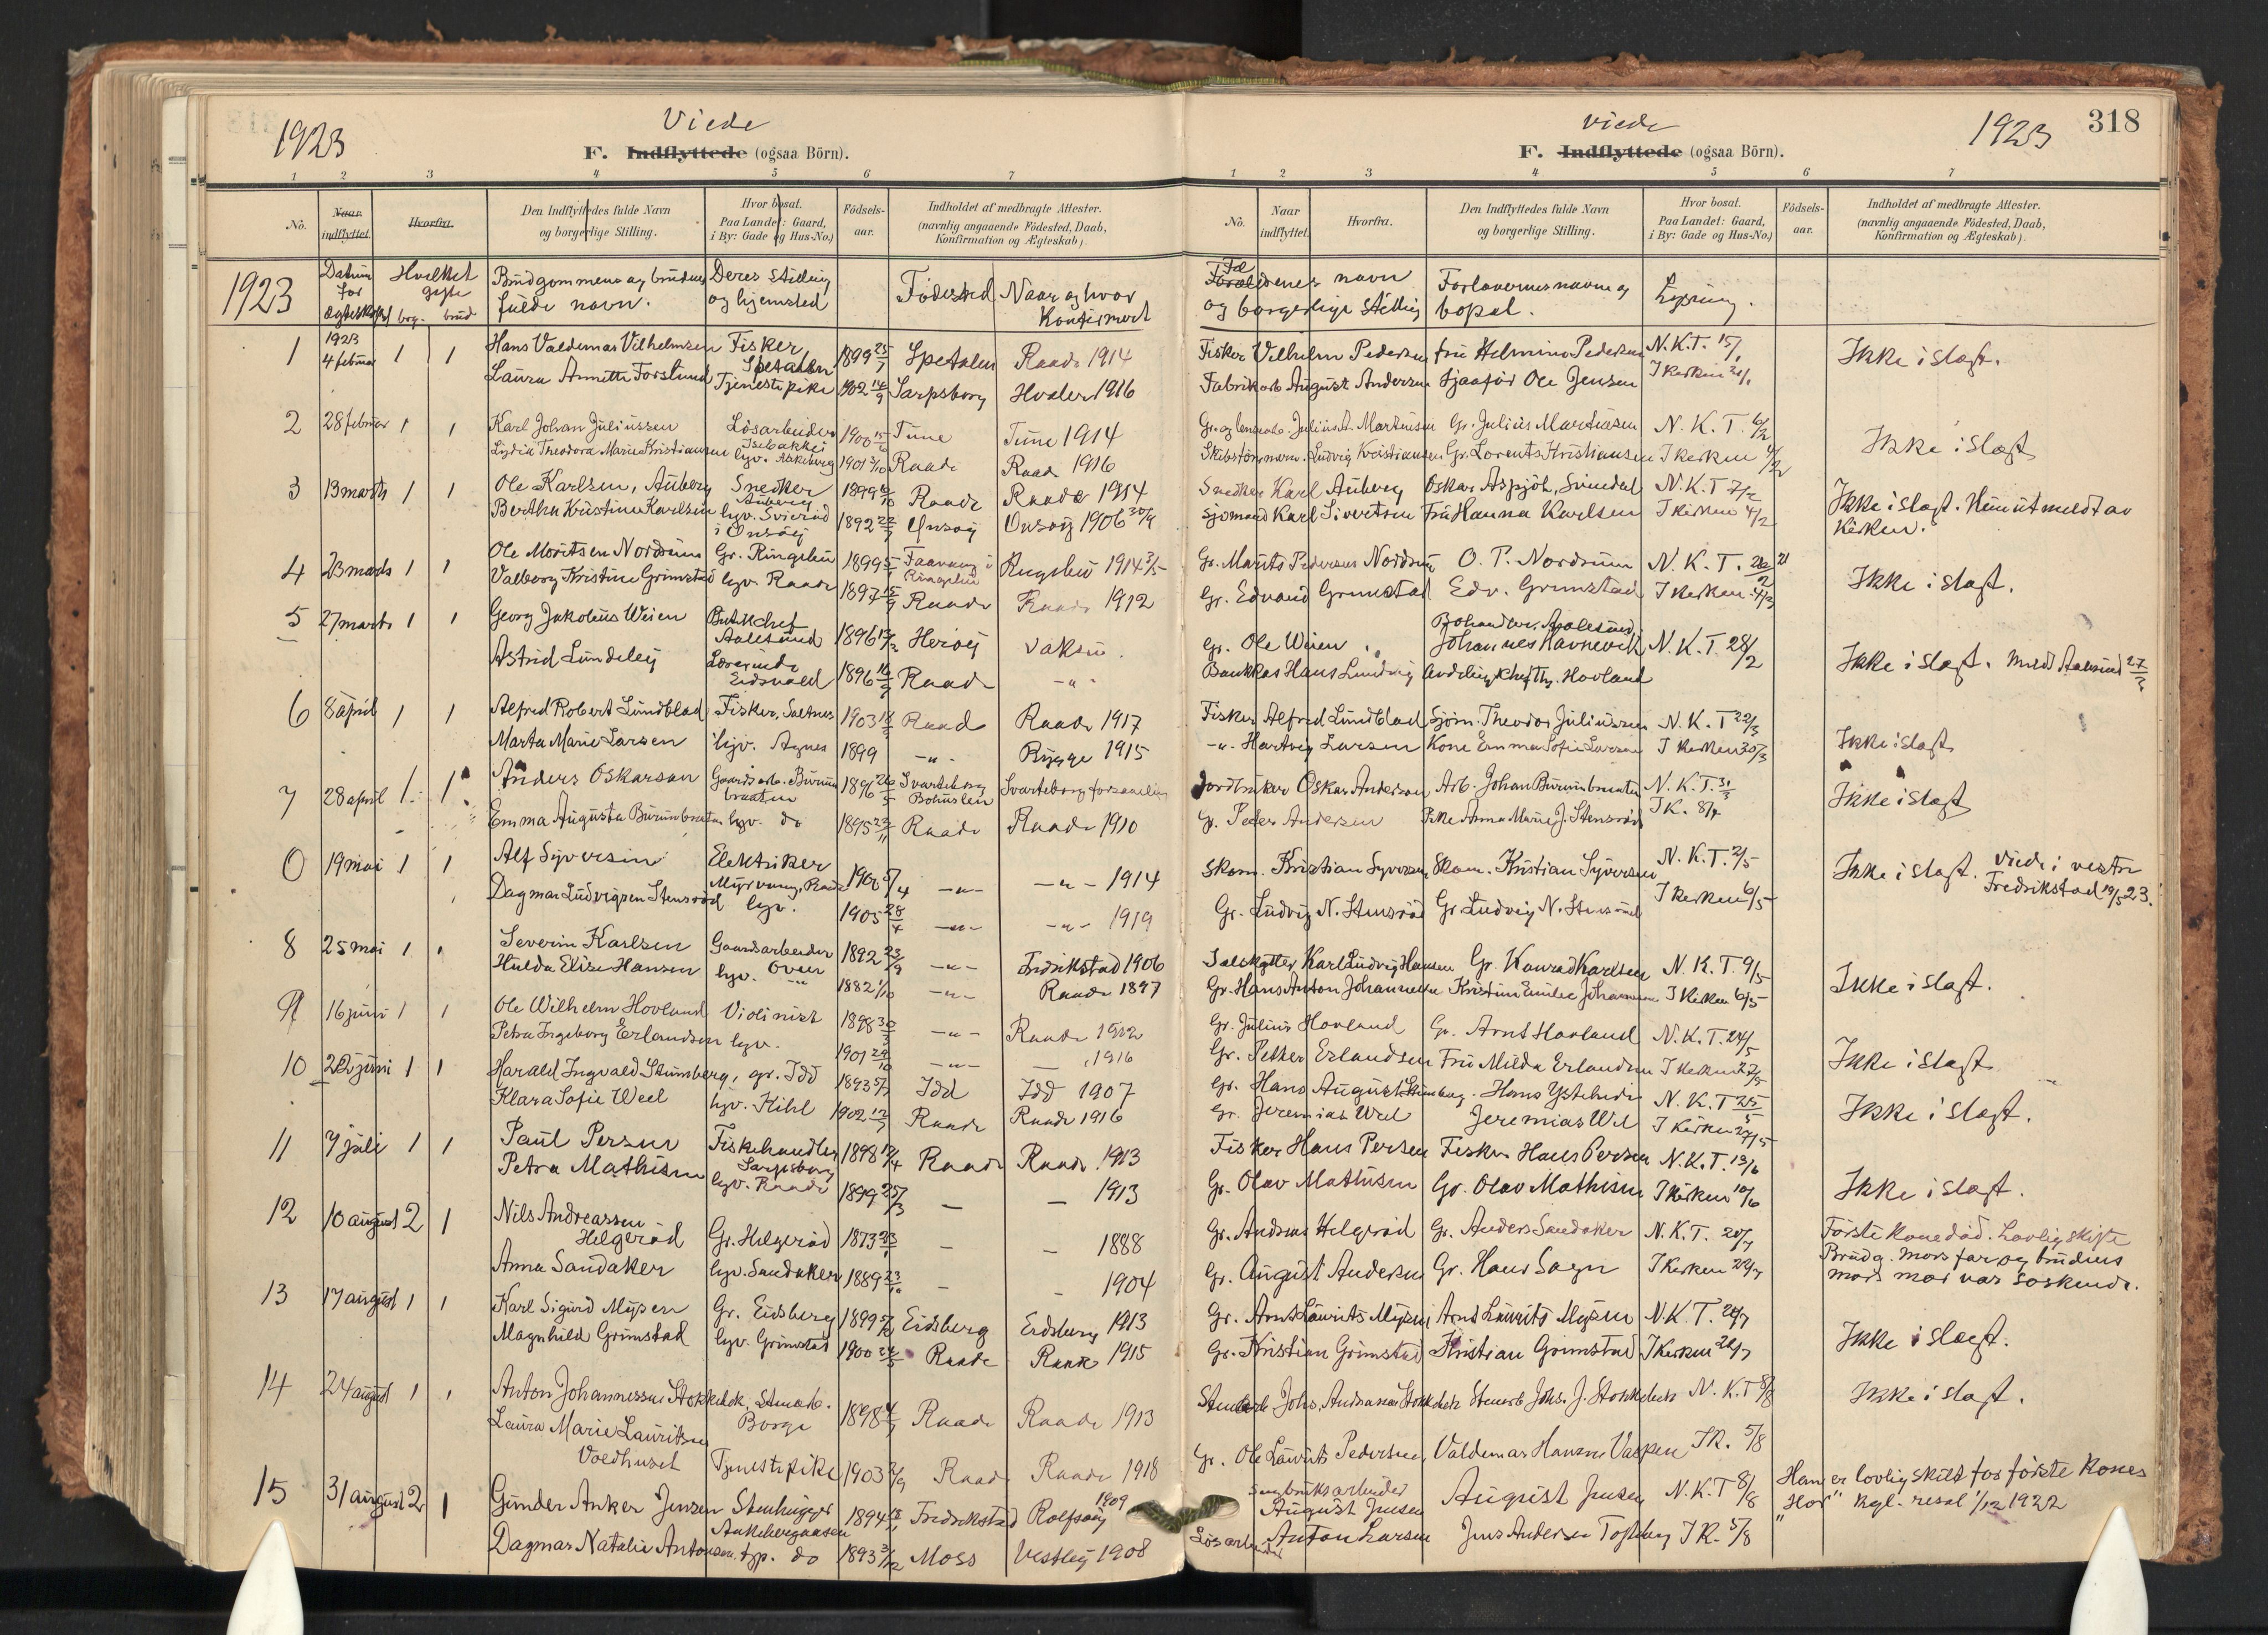 1923
Viede
F. Indflyttede (ogsaa Börn).
1 2 3 4 5 6 7
No. Naar indflyttet. Hvorfra. Den Indflyttedes fulde Navn og borgerlige Stilling. Hvor bosat. Paa Landet: Gaard, i By: Gade og Hus-No.) Födsels-aar. Indholdet af medbragte Attester. (navnlig angaaende Födested, Daab, Konfirmation og Ægteskab).
1923 Datum for Hvilket gifte brg. brud Brudgommens og brudens fulde navn. Deres stilling og hjemsted Födested Naar og hvor Konfirmert
1 1923 4 februar 1 1 Hans Valdemar Vilhelmsen Fisker Spetalen 1899 25/7 Spetalen Raade 1914
Laura Annette Forslund Tjenestepike 1902 14/9 Sarpsborg Hvaler 1916
2 28 februar 1 1 Karl Johan Juliussen Lösarbeider 1900 Tune Tune 1914
Lydia Theodora Marie Kristiansen hjv. 1901 3/10 Raade Raade 1916
3 13 marts 1 1 Ole Karlsen, Auberg Snedker Auberg 1899 Raade Raade 1914
Bertha Kristine Karlsen hjv. i Onsöy 1892 Onsöy Onsöy 1906 30/9
4 23 marts 1 1 Ole Moritsen Nordrum Gr. Ringebu 1899 Faavang i Ringebu Ringebu 1914 3/5
Valborg Kristine Grimstad hjv. Raade 1897 15/9 Raade Raade 1912
5 27 marts 1 1 Georg Jakobus Weien Butikchef Aalesund 1896 Heröy
Astrid Lundeby Lærerinde Eidsvold 1896 Raade -"-
6 8 april 1 1 Alfred Robert Lundblad Fisker, Saltnes 1903 Raade Raade 1917
Marta Marie Larsen hjv. Agnes 1899 -"- Rygge 1915
7 28 april 1 1 Anders Oskarson Gaardsarb. 1896 26/5 Svarteborg Bohuslen Svarteborg forsamling
Emma Augusta Burumbraaten hjv. do 1895 23/11 Raade Raade 1910
0 19 mai 1 1 Alf Syversen Elektriker Myrvang, Raade 1900 5/4 -"- -"- 1914
Dagmar Ludvigsen Stensröd hjv. 1905 28/4 -"- -"- 1919
8 25 mai 1 1 Severin Karlsen Gaardsarbeider 1892 23/9 -"- Fredrikstad 1906
Hulda Elise Hansen hjv. -"- 1882 1/10 -"- Raade 1897
9 16 juni 1 1 Ole Wilhelm Hovland Violinist 1898 -"- Raade 1912
Petra Ingeborg Erlandsen hjv. 1901 29/10 -"- 1916
10 22 juni 1 1 Harald Ingvald Stumberg, gr. Idd 1893 5/7 Idd Idd 1907
Klara Sofie Weel hjv. Kihl 1902 Raade Raade 1916
11 7 juli 1 1 Paul Persen Fiskehandler Sarpsborg 1898 Raade Raade 1913
Petra Mathisen hjv. Raade 1899 25/3 – – 1913
12 10 august 2 1 Nils Andreassen Helgeröd Gr. Helgeröd 1873 – – 1888
Anna Sandaker hjv. Sandaker 1889 23/10 – – 1904
13 17 august 1 1 Karl Sigurd Mysen Gr. Eidsberg 1899 Eidsberg Eidsberg 1913
Magnhild Grimstad hjv. Grimstad 1900 Raade Raade 1915
14 24 august 1 1 Anton Johannessen Stokkebek, Stenarb. Borge 1898 4/7 Raade Raade 1913
Laura Marie Lauritsen Voldhuset Tjenestepike 1903 2/9 Raade Raade 1918
15 31 august 2 1 Gunder Anker Jensen Stenhugger 1894 Fredrikstad Rolfsöy 1909
Dagmar Natalie Antonsen do 1893 3/12 Moss Vestby 1908
318
viede
1923
F. Indflyttede (ogsaa Börn).
1 2 3 4 5 6 7
No. Naar indflyttet. Hvorfra. Den Indflyttedes fulde Navn og borgerlige Stilling. Hvor bosat. Paa Landet: Gaard, i By: Gade og Hus-No.) Födsels-aar. Indholdet af medbragte Attester. (navnlig angaaende Födested, Daab, Konfirmation og Ægteskab).
Forældrenes navn og borgerlige stilling Forlovernes navne og bopel. Lysning.
Fisker Vilhelm Pedersen fru Helmine Pedersen N.K.T. 15/1 Ikke i slægt.
Fabrikarb. August Andersen Sjaaför Ole Jensen I kirken 21/1
Julius A. Martinsen Gr. Julius Martinsen N.K.T. 6/2 Ikke i slægt
Skibstömmerm. Ludvig Kristiansen Gr. Lorents Kristiansen I kirken 4/2
Snedker Karl Auberg Oskar Aspjöl, Svindal N.K.T 7/2 Ikke i slægt. Hun utmeldt av kirken.
Sjömand Karl Sivertsen Fru Hanna Karlsen I kirken 4/2
Gr. Maurits Pedersen Nordrum O. P. Nordrum N.K.T. Ikke i slægt.
Gr. Edvard Grimstad Edv. Grimstad I kirken 4/3
Gr. Ole Weien Bohandler. Aalesund, Johannes Havnevik N.K.T. 28/2
Bankkas. Hans Lundeby Avdelingschef Hovland Ikke i slægt. Meldt Aalesund 27/3
Fisker Alfred Lundblad Sjöm. Theodor Juliussen N.K.T 22/3 Ikke i slægt
-"- Hartvig Larsen Kone Emma Sofie Larsen I kirken 30/3
Jordbruker Oskar Anderson Arb. Johan Burumbraaten N.K.T. 31/3 Ikke i slægt
Gr. Peder Andersen Pike Anna Marie J. Stensröd I K. 8/4
Skom. Kristian Syversen Skom. Kristian Syversen N.K.T. 2/5 Ikke i slægt. Viede i vestre Fredrikstad 19/5 23.
Gr. Ludvig N. Stensröd Gr. Ludvig N. Stensröd I kirken 6/5
Karl Ludvig Hansen Gr. Konrad Karlsen N.K.T. 9/5 Ikke i slægt.
Gr. Hans Anton Johannesen Kristine Emilie Johannesen I kirken 6/5
Gr. Julius Hovland Gr. Arnt Hovland N.K.T. 24/5 Ikke i slægt
Gr. Petter Erlandsen Fru Milda Erlandsen I kirken 27/5
Gr. Hans August Stumberg. Hans Ystehede N.K.T 25/5 Ikke i slægt.
Gr. Jeremias Weel Jeremias Wel I kirken 27/5
Fisker Hans Persen Fisker Hans Persen N.K.T. 13/6 Ikke i slægt.
Gr. Olav Mathisen Gr. Olav Mathisen I kirken 10/6
Gr. Andreas Helgeröd Gr. Anders Sandaker N.K.T. 20/7 Förste kone död. Lovlig skifte
Gr. August Andersen Gr. Hans Sogn I kirken 22/7 Brudg. mors far og brudens mors mor var söskende.
Gr. Arnt Laurits Mysen Arnt Laurits Mysen N.K.T. 24/7 Ikke i slægt.
Gr. Kristian Grimstad Kristian Grimstad I kirken 22/7
Stenarb. Johs. Andreasen Stokkebek Stenarb Johs. J. Stokkebek N.K.T 8/8 Ikke i slægt.
Gr. Ole Laurits Pedersen, Valdemar Hansen I K. 5/8
August Jensen August Jensen N.K.T 8/8 Han er lovlig skilt fra förste kones Hor" kgl. resol 1/12 1922
Lösarbeider Anton Larsen Jens Andersen I K. 5/8